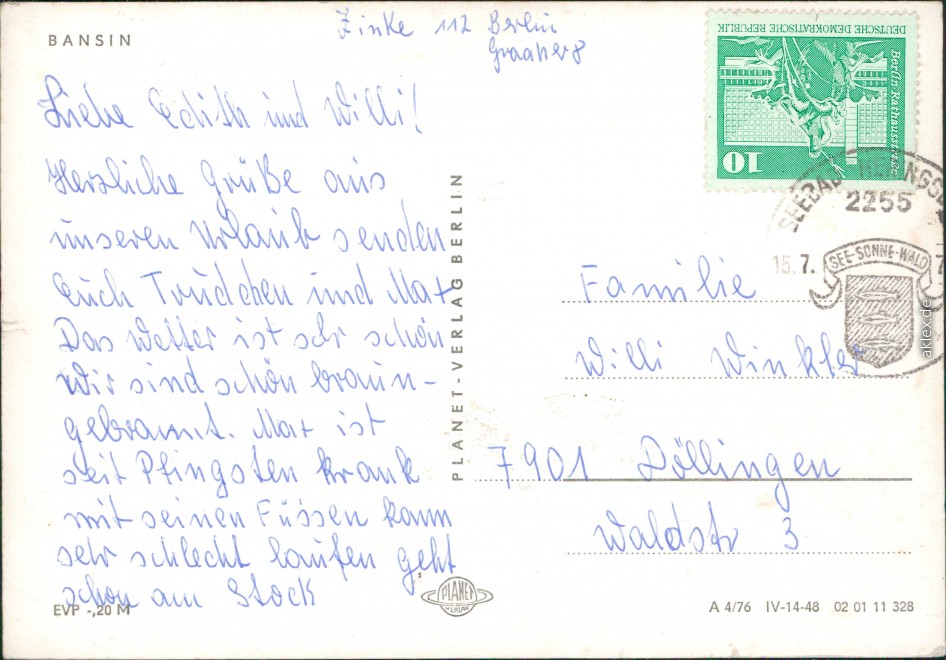 BANSIN
Zinke 112 Berlin
Liebe Edith und Willi!
Herzliche Grüße aus
unseren Urlaub senden
Euch Trudchen und Max
Das Wetter ist sehr schön
Wir sind schön braun-
gebrannt. Max ist
seit Pfingsten krank
mit seinen Füssen kann
sehr schlecht laufen geht
schon am Stock
EVP -,20 M
PLANET-VERLAG BERLIN
PLANET
VERLAG
DEUTSCHE DEMOKRATISCHE REPUBLIK
Berlin-Rathausstraße
10
SEEBAD
2255
15.7.
SEE-SONNE-WALD
Familie
Willi Winkler
7901 Döllingen
Waldstr 3
A 4/76 IV-14-48 02 01 11 328
aklex.de